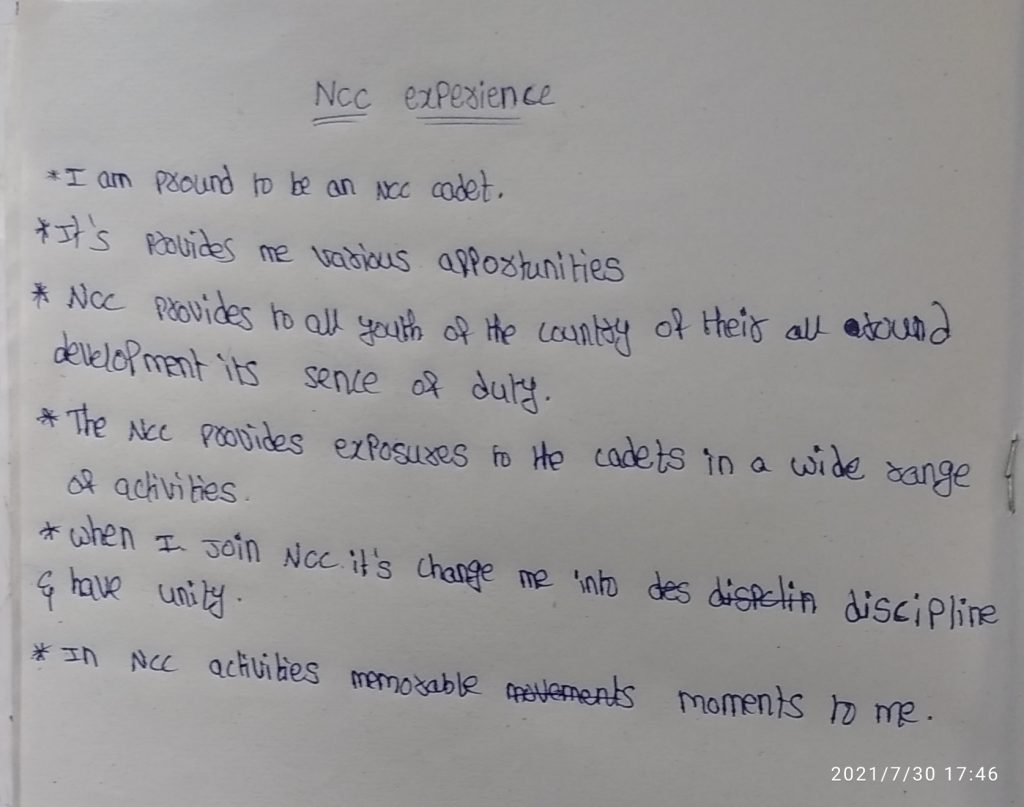 Ncc experience
*I am pround to be an NCC cadet.
*It's provides me various apportunities
* NCC provides to all youth of the country of their all around
development its sence of duty.
* The NCC provides exposures to the cadets in a wide range
of activities.
* when I join NCC it's change me into des dispclin discipline
& have unity.
* In NCC activities memorable movements moments to me.
2021/7/30 17:46